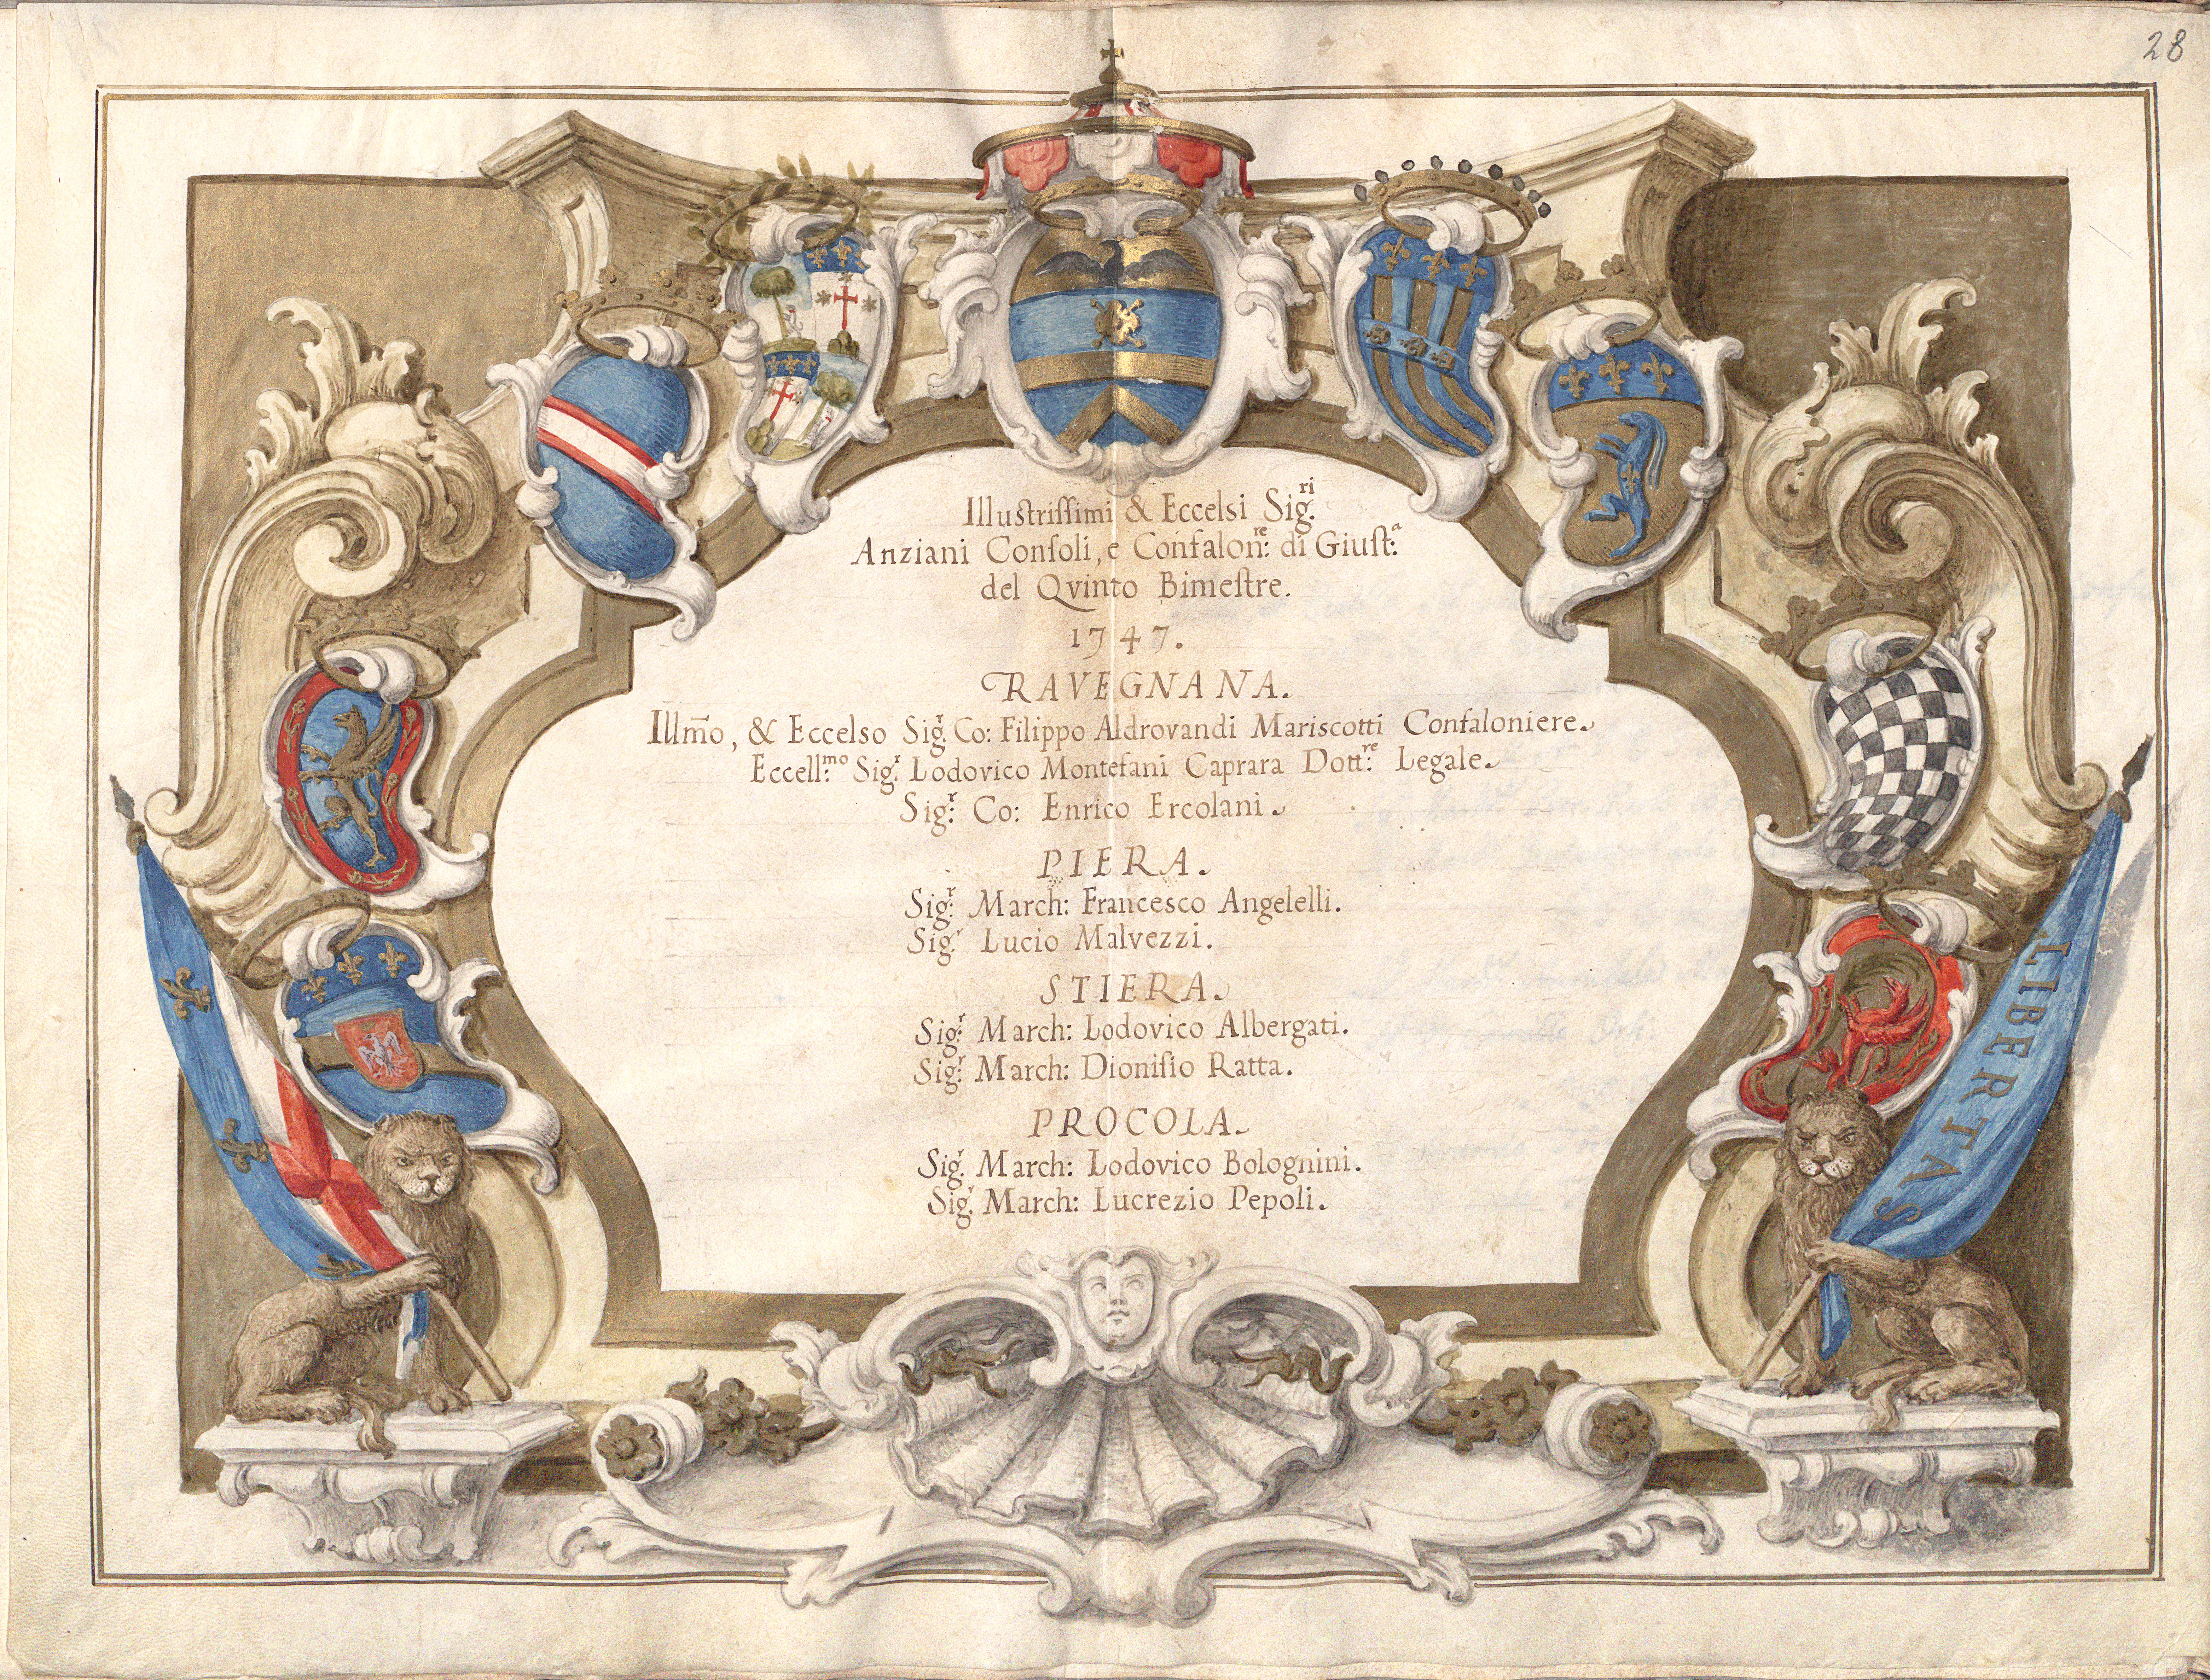 28
Illustrissimi & Eccelsi Sig.ri
Anziani Consoli, e Confalon:re di Giust:a
del Qvinto Bimestre.
1747.
RAVEGNANA.
Illm̃o, & Eccelso Sig.r Co: Filippo Aldrovandi Mariscotti Confaloniere.
Eccell:mo Sig:r Lodovico Montefani Caprara Dott:re Legale.
Sig:r Co: Enrico Ercolani.
PIERA.
Sig:r March: Francesco Angelelli.
Sig.r Lucio Malvezzi.
STIERA.
Sig:r March: Lodovico Albergati.
Sig:r March: Dionisio Ratta.
PROCOLA.
Sig.r March: Lodovico Bolognini.
Sig.r March: Lucrezio Pepoli.
LIBERTAS